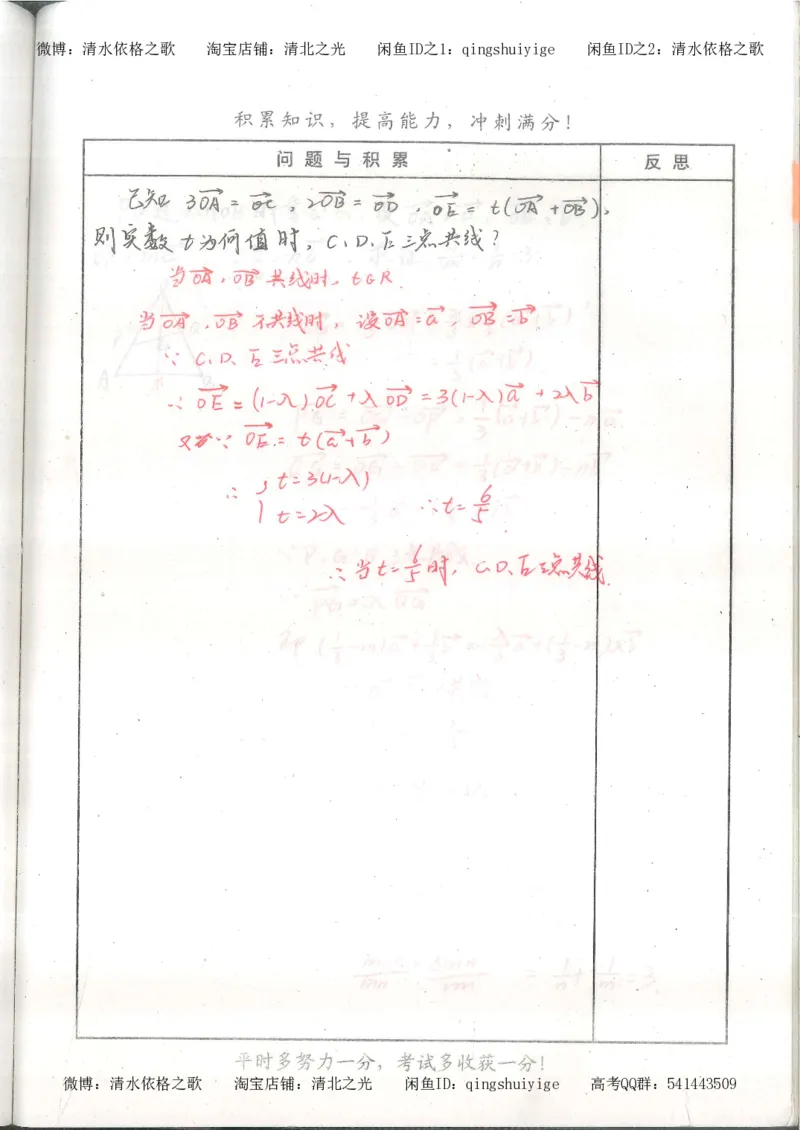 微博：清水依格之歌 淘宝店铺：清北之光 闲鱼ID之1：qingshuiyige 闲鱼ID之2：清水依格之歌
积累知识，提高能力，冲刺满分！
问题与积累 反思
已知 3OA→ = OC→，2OB→ = OD→，OE→ = t(OA→ + OB→)，
则实数 t 为何值时，C、D、E三点共线？
当OA→，OB→ 共线时，t∈R.
当OA→，OB→ 不共线时，设OA→=a→，OB→=b→
∵ C、D、E三点共线
∴ OE→ = (1-λ)OC→ + λOD→ = 3(1-λ)a→ + 2λb→
又∵ OE→ = t(a→+b→)
∴ { t=3(1-λ)
t=2λ ∴t=6/5
∴当t=6/5时，C、D、E三点共线
平时多努力一分，考试多收获一分！
微博：清水依格之歌 淘宝店铺：清北之光 闲鱼ID：qingshuiyige 高考QQ群：541443509